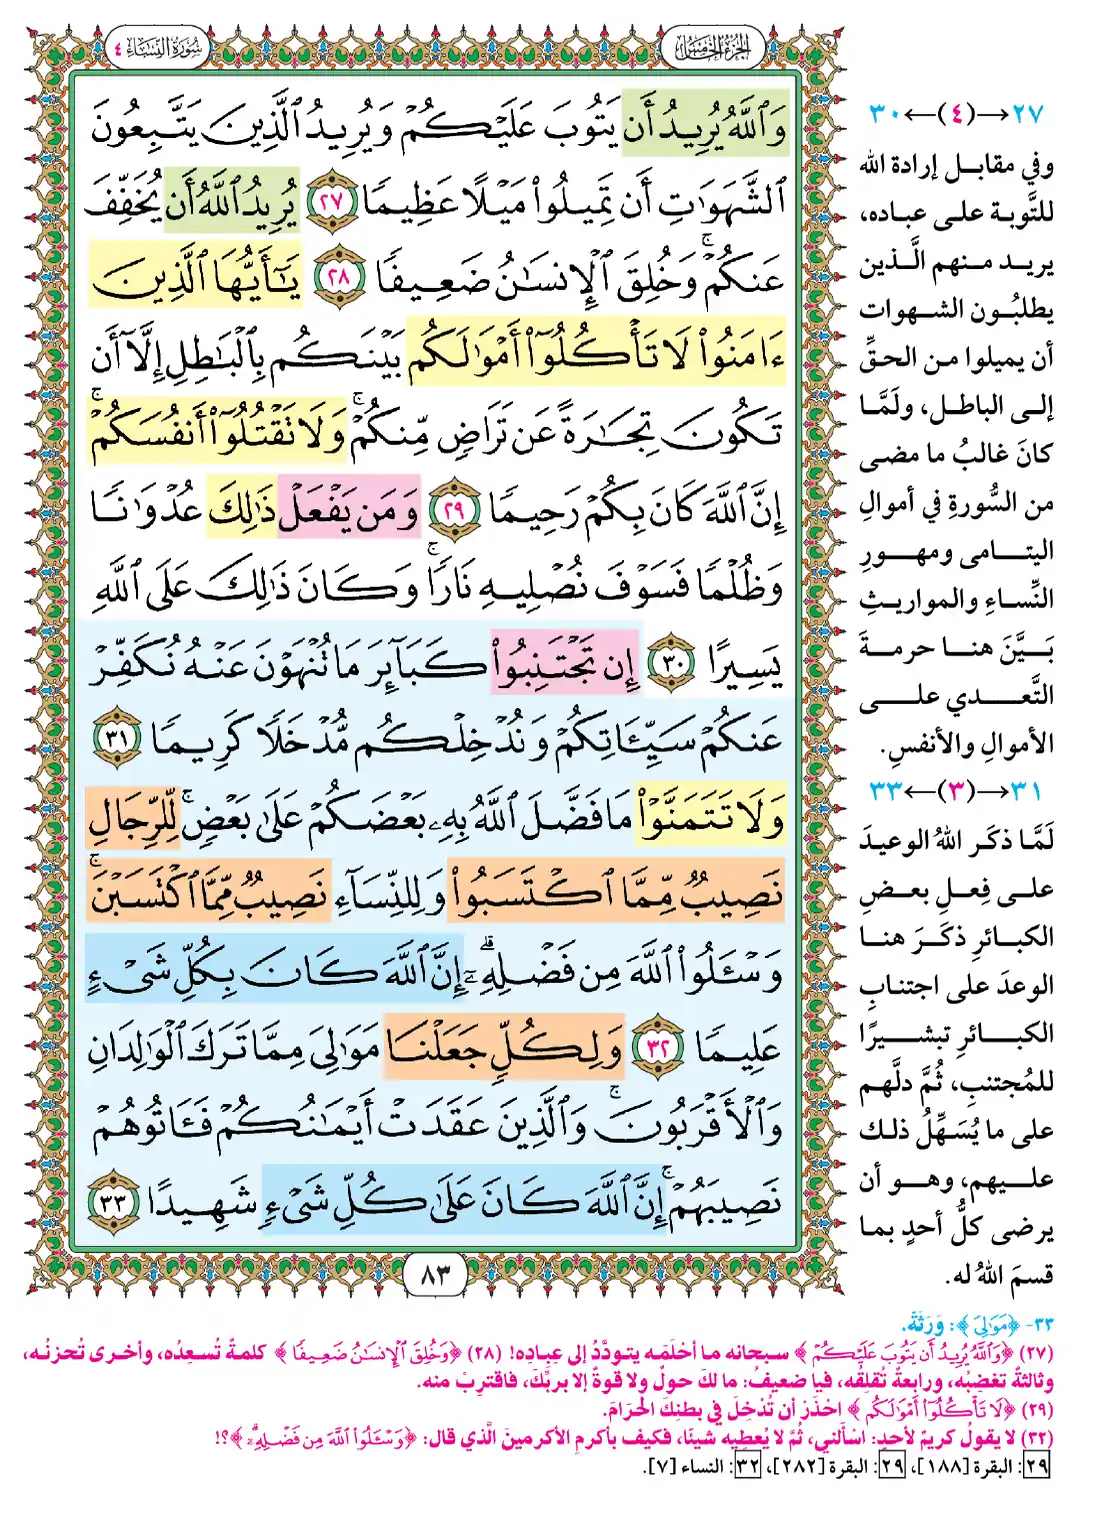 سُورَةُ النِّسَاءِ ٤
الجُزْءُ الخَامِسُ
وَٱللَّهُ يُرِيدُ أَن يَتُوبَ عَلَيْكُمْ وَيُرِيدُ ٱلَّذِينَ يَتَّبِعُونَ
ٱلشَّهَوَٰتِ أَن تَمِيلُوا۟ مَيْلًا عَظِيمًا ٢٧ يُرِيدُ ٱللَّهُ أَن يُخَفِّفَ
عَنكُمْ ۚ وَخُلِقَ ٱلْإِنسَٰنُ ضَعِيفًا ٢٨ يَٰٓأَيُّهَا ٱلَّذِينَ
ءَامَنُوا۟ لَا تَأْكُلُوٓا۟ أَمْوَٰلَكُم بَيْنَكُم بِٱلْبَٰطِلِ إِلَّآ أَن
تَكُونَ تِجَٰرَةً عَن تَرَاضٍ مِّنكُمْ ۚ وَلَا تَقْتُلُوٓا۟ أَنفُسَكُمْ ۚ
إِنَّ ٱللَّهَ كَانَ بِكُمْ رَحِيمًا ٢٩ وَمَن يَفْعَلْ ذَٰلِكَ عُدْوَٰنًا
وَظُلْمًا فَسَوْفَ نُصْلِيهِ نَارًا ۚ وَكَانَ ذَٰلِكَ عَلَى ٱللَّهِ
يَسِيرًا ٣٠ إِن تَجْتَنِبُوا۟ كَبَآئِرَ مَا تُنْهَوْنَ عَنْهُ نُكَفِّرْ
عَنكُمْ سَيِّـَٔاتِكُمْ وَنُدْخِلْكُم مُّدْخَلًا كَرِيمًا ٣١
وَلَا تَتَمَنَّوْا۟ مَا فَضَّلَ ٱللَّهُ بِهِۦ بَعْضَكُمْ عَلَىٰ بَعْضٍ ۚ لِّلرِّجَالِ
نَصِيبٌ مِّمَّا ٱكْتَسَبُوا۟ وَلِلنِّسَآءِ نَصِيبٌ مِّمَّا ٱكْتَسَبْنَ ۚ
وَسْـَٔلُوا۟ ٱللَّهَ مِن فَضْلِهِۦٓ ۗ إِنَّ ٱللَّهَ كَانَ بِكُلِّ شَىْءٍ
عَلِيمًا ٣٢ وَلِكُلٍّ جَعَلْنَا مَوَٰلِىَ مِمَّا تَرَكَ ٱلْوَٰلِدَانِ
وَٱلْأَقْرَبُونَ ۚ وَٱلَّذِينَ عَقَدَتْ أَيْمَٰنُكُمْ فَـَٔاتُوهُمْ
نَصِيبَهُمْ ۚ إِنَّ ٱللَّهَ كَانَ عَلَىٰ كُلِّ شَىْءٍ شَهِيدًا ٣٣
٨٣
٢٧→(٤)←٣٠
وفي مقابل إرادة الله
للتَّوبة على عباده،
يريد منهم الَّذين
يطلبُون الشهوات
أن يميلوا من الحقِّ
إلى الباطل، ولَمَّا
كانَ غالبُ ما مضى
من السُّورةِ في أموالِ
اليتامى ومهورِ
النِّساءِ والمواريثِ
بَيَّنَ هنا حرمةَ
التَّعدي على
الأموالِ والأنفسِ.
٣١→(٣)←٣٣
لَمَّا ذكَر اللهُ الوعيدَ
على فِعلِ بعضِ
الكبائرِ ذكَرَ هنا
الوعدَ على اجتنابِ
الكبائرِ تبشيرًا
للمُجتنبِ، ثُمَّ دلَّهم
على ما يُسَهِّلُ ذلك
عليهم، وهو أن
يرضى كلُّ أحدٍ بما
قسمَ اللهُ له.
٣٣- ﴿مَوَٰلِىَ﴾: وَرَثَةً.
(٢٧) ﴿وَٱللَّهُ يُرِيدُ أَن يَتُوبَ عَلَيْكُمْ﴾ سبحانه ما أحْلَمَه يتودَّدُ إلى عِبادِه! (٢٨) ﴿وَخُلِقَ ٱلْإِنسَٰنُ ضَعِيفًا﴾ كلمةٌ تُسعِدُه، وأخرى تُحزنُه،
وثالثةٌ تغضِبُه، ورابعةٌ تُقلِقُه، فيا ضعيفُ: ما لكَ حولٌ ولا قوةٌ إلا بربِّكَ، فاقتربْ منه.
(٢٩) ﴿لَا تَأْكُلُوٓا۟ أَمْوَٰلَكُم﴾ احْذَرْ أن تُدْخِلَ في بطنِكَ الحَرَامَ.
(٣٢) لا يقولُ كريمٌ لأحدٍ: اسْألني، ثُمَّ لا يُعطِيه شيئًا، فكيف بأكرمِ الأكرمينَ الَّذي قال: ﴿وَسْـَٔلُوا۟ ٱللَّهَ مِن فَضْلِهِۦٓ ۗ﴾؟!
٢٩: البقرة [١٨٨]، ٢٩: البقرة [٢٨٢]، ٣٢: النساء [٧].